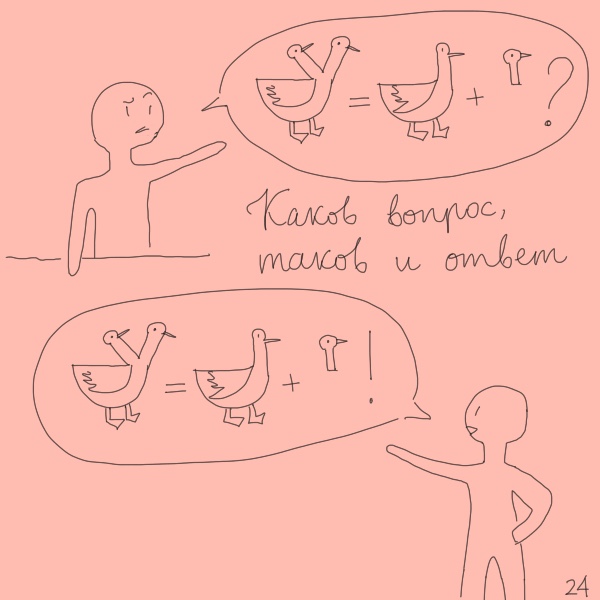 = + ?
Каков вопрос,
таков и ответ
= + !
24